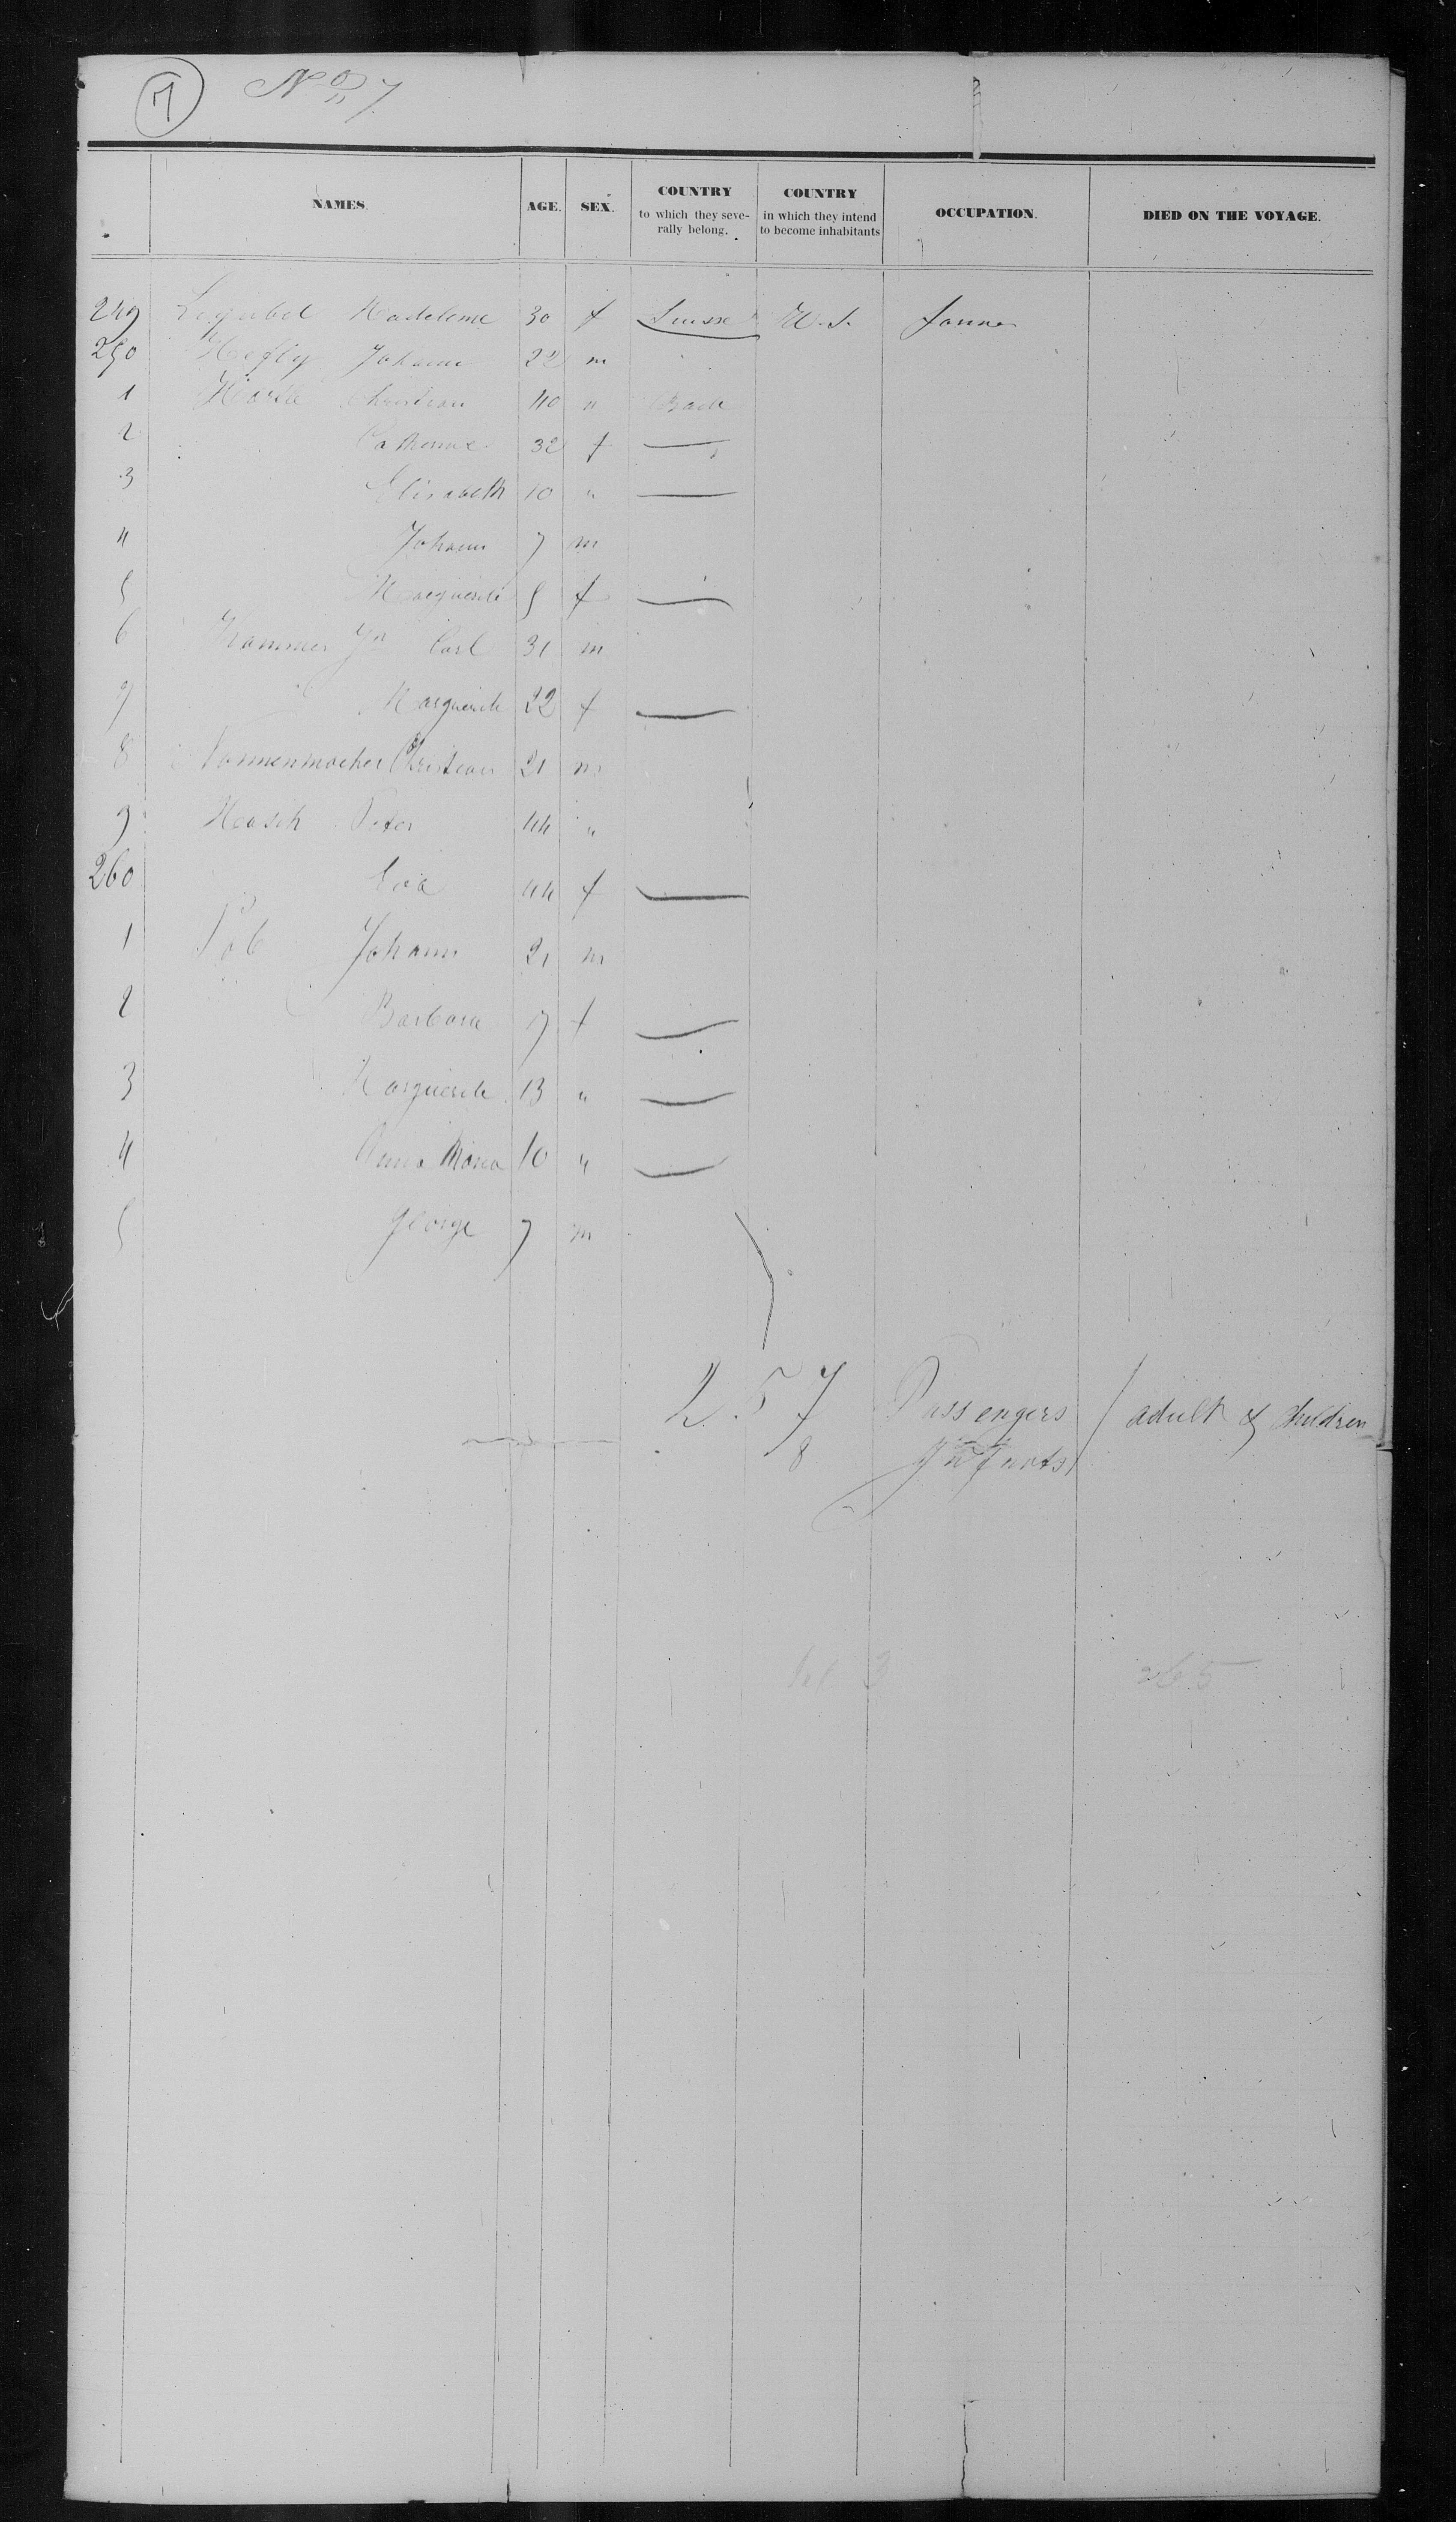 7 No 7
NAMES. AGE. SEX. COUNTRY to which they seve- rally belong. COUNTRY in which they intend to become inhabitants OCCUPATION. DIED ON THE VOYAGE.
249 Madeleine 30 f Suisse U.S. farmer
250 Hefly Johann 22 m
1 Christian 40 " Bade
2 Catherine 32 f —
3 Elisabeth 10 " —
4 Johann 7 m
5 Marguerite 5 f —
6 Kammer Jn Carl 31 m
7 " Marguerite 22 f —
8 Nonnenmacher Christian 21 m
9 Hasch Peter 44 "
260 Eva 44 f —
1 Pob Johann 21 m
2 Barbara 17 f —
3 Marguerite 13 " —
4 Anna Maria 10 " —
5 George 7 m
257 Passengers / adult & children
8 Infants
265